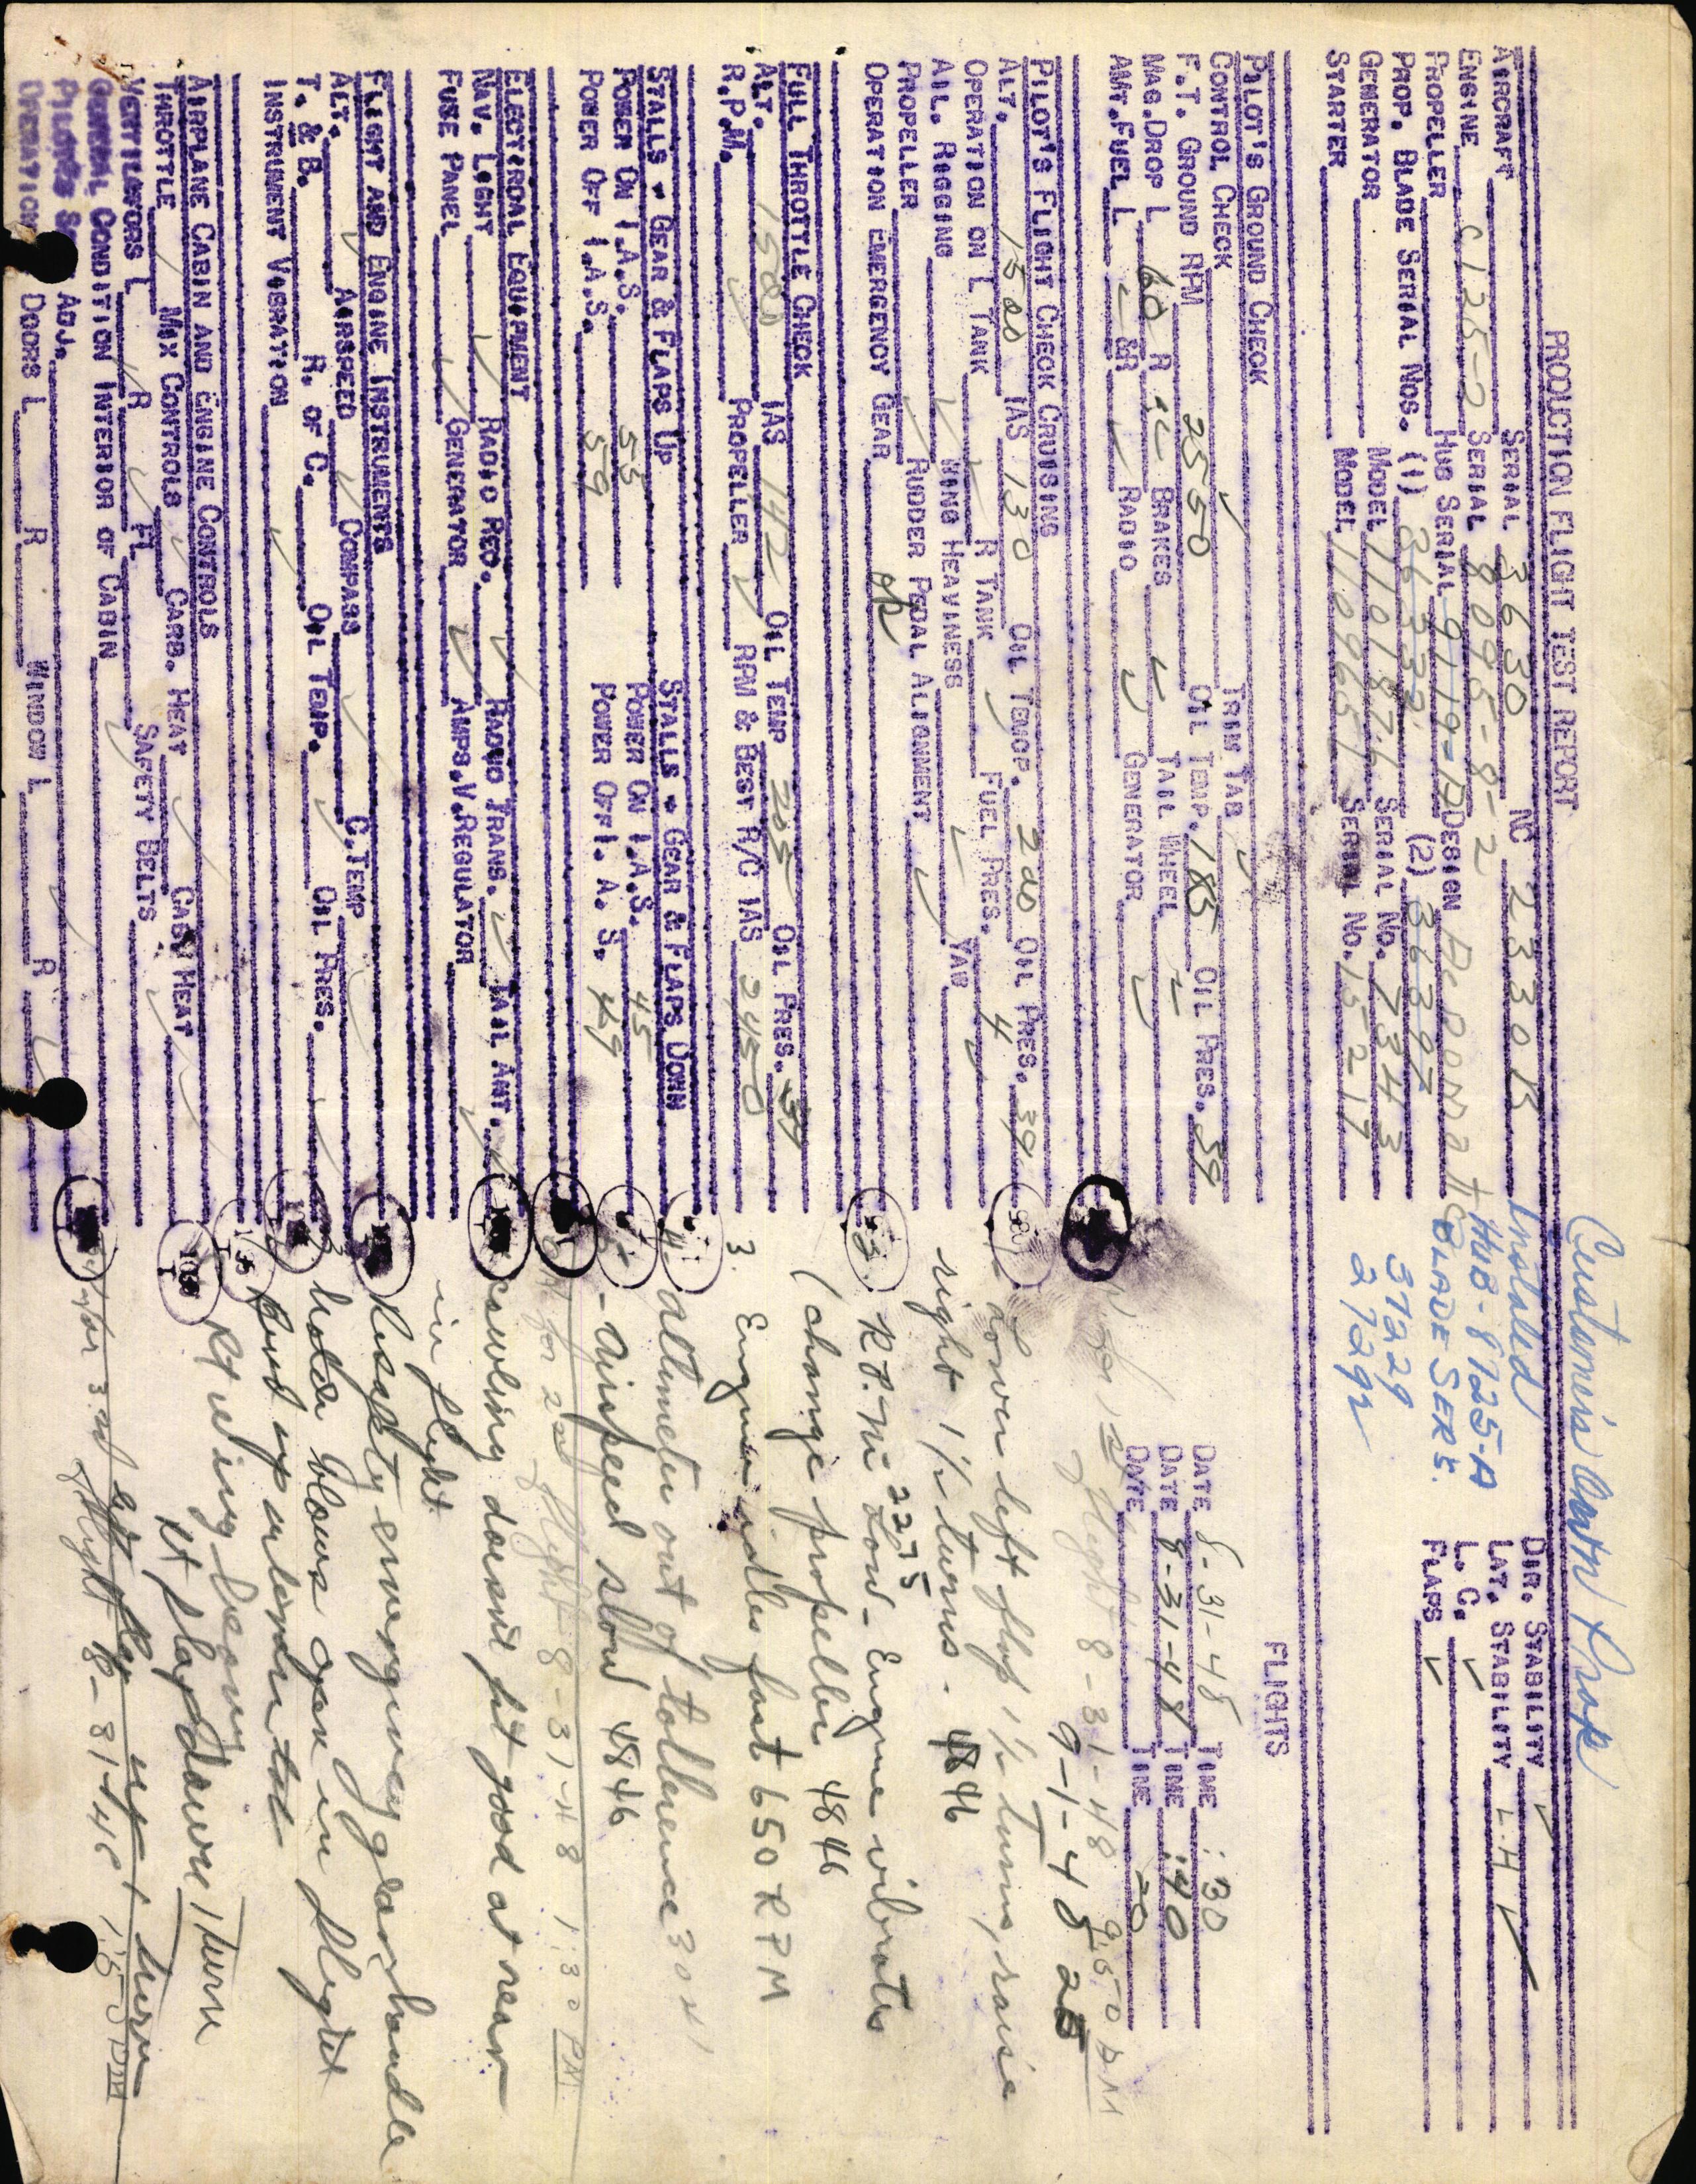 Customer's Own Prop
PRODUCTION FLIGHT TEST REPORT
AIRCRAFT SERIAL 3630 NC 2330B Installed DIR. STABILITY ✓
ENGINE C125-2 SERIAL 8095-8-2 HUB-8125-A LAT. STABILITY L.H ✓
PROPELLER HUB SERIAL 9119-D DESIGN BLADE SERS. L. C. ✓
PROP. BLADE SERIAL NOS. (1) (2) 37229 FLAPS ✓
GENERATOR MODEL 1101876 SERIAL NO. 7343 27292
STARTER MODEL 1109657 SERIAL NO.
FLIGHTS
PILOT'S GROUND CHECK
CONTROL CHECK ✓ TRIM TAB ✓
F.T. GROUND RPM 2550 OIL TEMP. 185 OIL PRES. 39 DATE 8-31-48 TIME :30
MAG.DROP L 60 R BRAKES TAIL WHEEL DATE 8-31-48 TIME :40
AMT.FUEL L & R RADIO GENERATOR DATE TIME 20
flight 8-31-48 9:50 AM
9-1-48 25
PILOT'S FLIGHT CHECK CRUISING
ALT. 1500 IAS 130 OIL TEMOP. 200 OIL PRES. 39 Lower left flap 1½ turns, raise
OPERATION ON L TANK R TANK FUEL PRES. 4
AIL. RIGGING ✓ WING HEAVINESS YAW right 1½ turns. 4846
PROPELLER RUDDER PEDAL ALIGNMENT
OPERATION EMERGENCY GEAR OK R.P.M. Low 2275 - Engine vibrates
(change propeller 4846
FULL THROTTLE CHECK
ALT. 1500 IAS 142 OIL TEMP 205 OIL PRES. 39
R.P.M. PROPELLER ✓ RPM & BEST R/C IAS 2450 3. Engine idles fast 650 RPM
STALLS - GEAR & FLAPS UP STALLS - GEAR & FLAPS DOWN altimeter out of tollerence
POWER ON I.A.S. 55 POWER ON I.A.S. 45 - Airspeed slow 4846
POWER OFF I.A.S. 59 POWER OFF I. A. S. 49
for 2nd flight 8-31-48 1:30 PM
ELECTIRDAL EQUIPMENT
NAV. LIGHT ✓ RADIO REC. ✓ RADIO TRANS. ✓ TAIL ANT. cowling doesnt fit good at rear
FUSE PANEL ✓ GENERATOR ✓ AMPS.V.REGULATOR in flight
FLIGHT AND ENGINE INSTRUMENTS
ALT. ✓ AIRSPEED ✓ COMPASS ✓ C.TEMP emergency gear handle
T. & B. R. OF C. OIL TEMP. ✓ OIL PRES. holder blows open in flight
INSTRUMENT VIBRATION ✓
AIRPLANE CABIN AND ENGINE CONTROLS
THROTTLE ✓ MIX CONTROLS ✓ CARB. HEAT ✓ CABIN HEAT ✓ Rt wing heavy
VERTILATORS L ✓ R ✓ SAFETY BELTS Rt flap down 1 turn
GENERAL CONDITION INTERIOR OF CABIN
PILOT'S SEAT ADJ.
OPERATION DOORS L R WINDOW L R
left flap up 1 turn
for 3rd flight 8-31-48